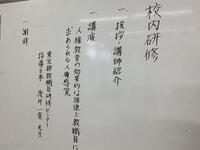 校内研修
一 挨拶・講師紹介
一 講演
人権教育の効果的な推進と教職員に
求められる人権感覚
東京都教職員研修センター
指導主事 先生
一 謝辞